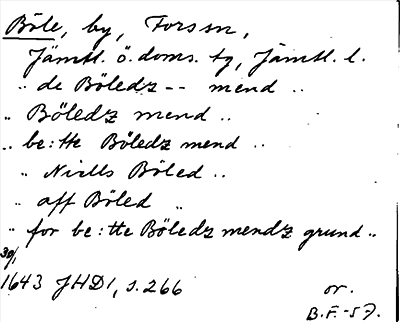 Böle, by, Forssn,
Jämtl. ö. doms. tg, Jämtl. l.
„ de Böledz -- mend „
„ Böledz mend „
„ be:tte Böledz mend „
„ Niells Böled „
„ aff Böled „
„ for be:tte Böledz mendz grund „
30/1
1643 JHD1, s. 266
or.
B.F.-57.